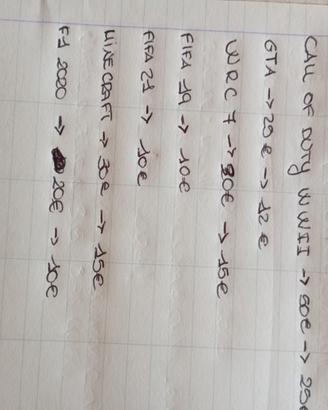 CALL OF DUTY WWII -> 50€ -> 25€
GTA -> 25€ -> 12€
WRC 7 -> 30€ -> 15€
FIFA 19 -> 10€
FIFA 21 -> 10€
MINECRAFT -> 30€ -> 15€
F1 2020 -> 20€ -> 10€